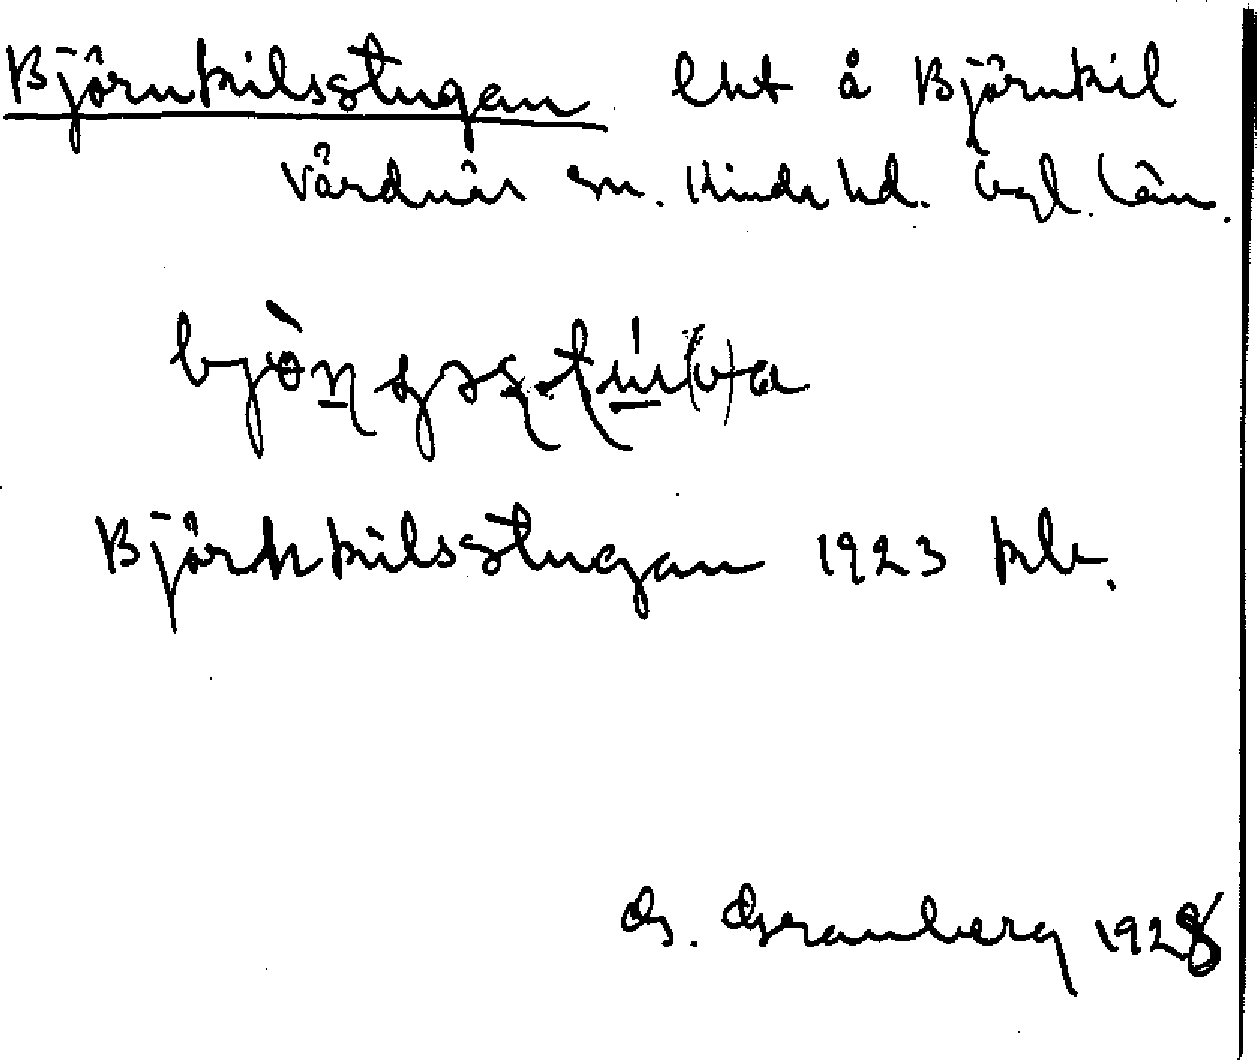 Björnkilsstugan lht å Björnkil
Vårdnäs sn. Kinds hd. Ögl. län.
Björkkilsstugan 1923 klr.
G. Granberg 1928